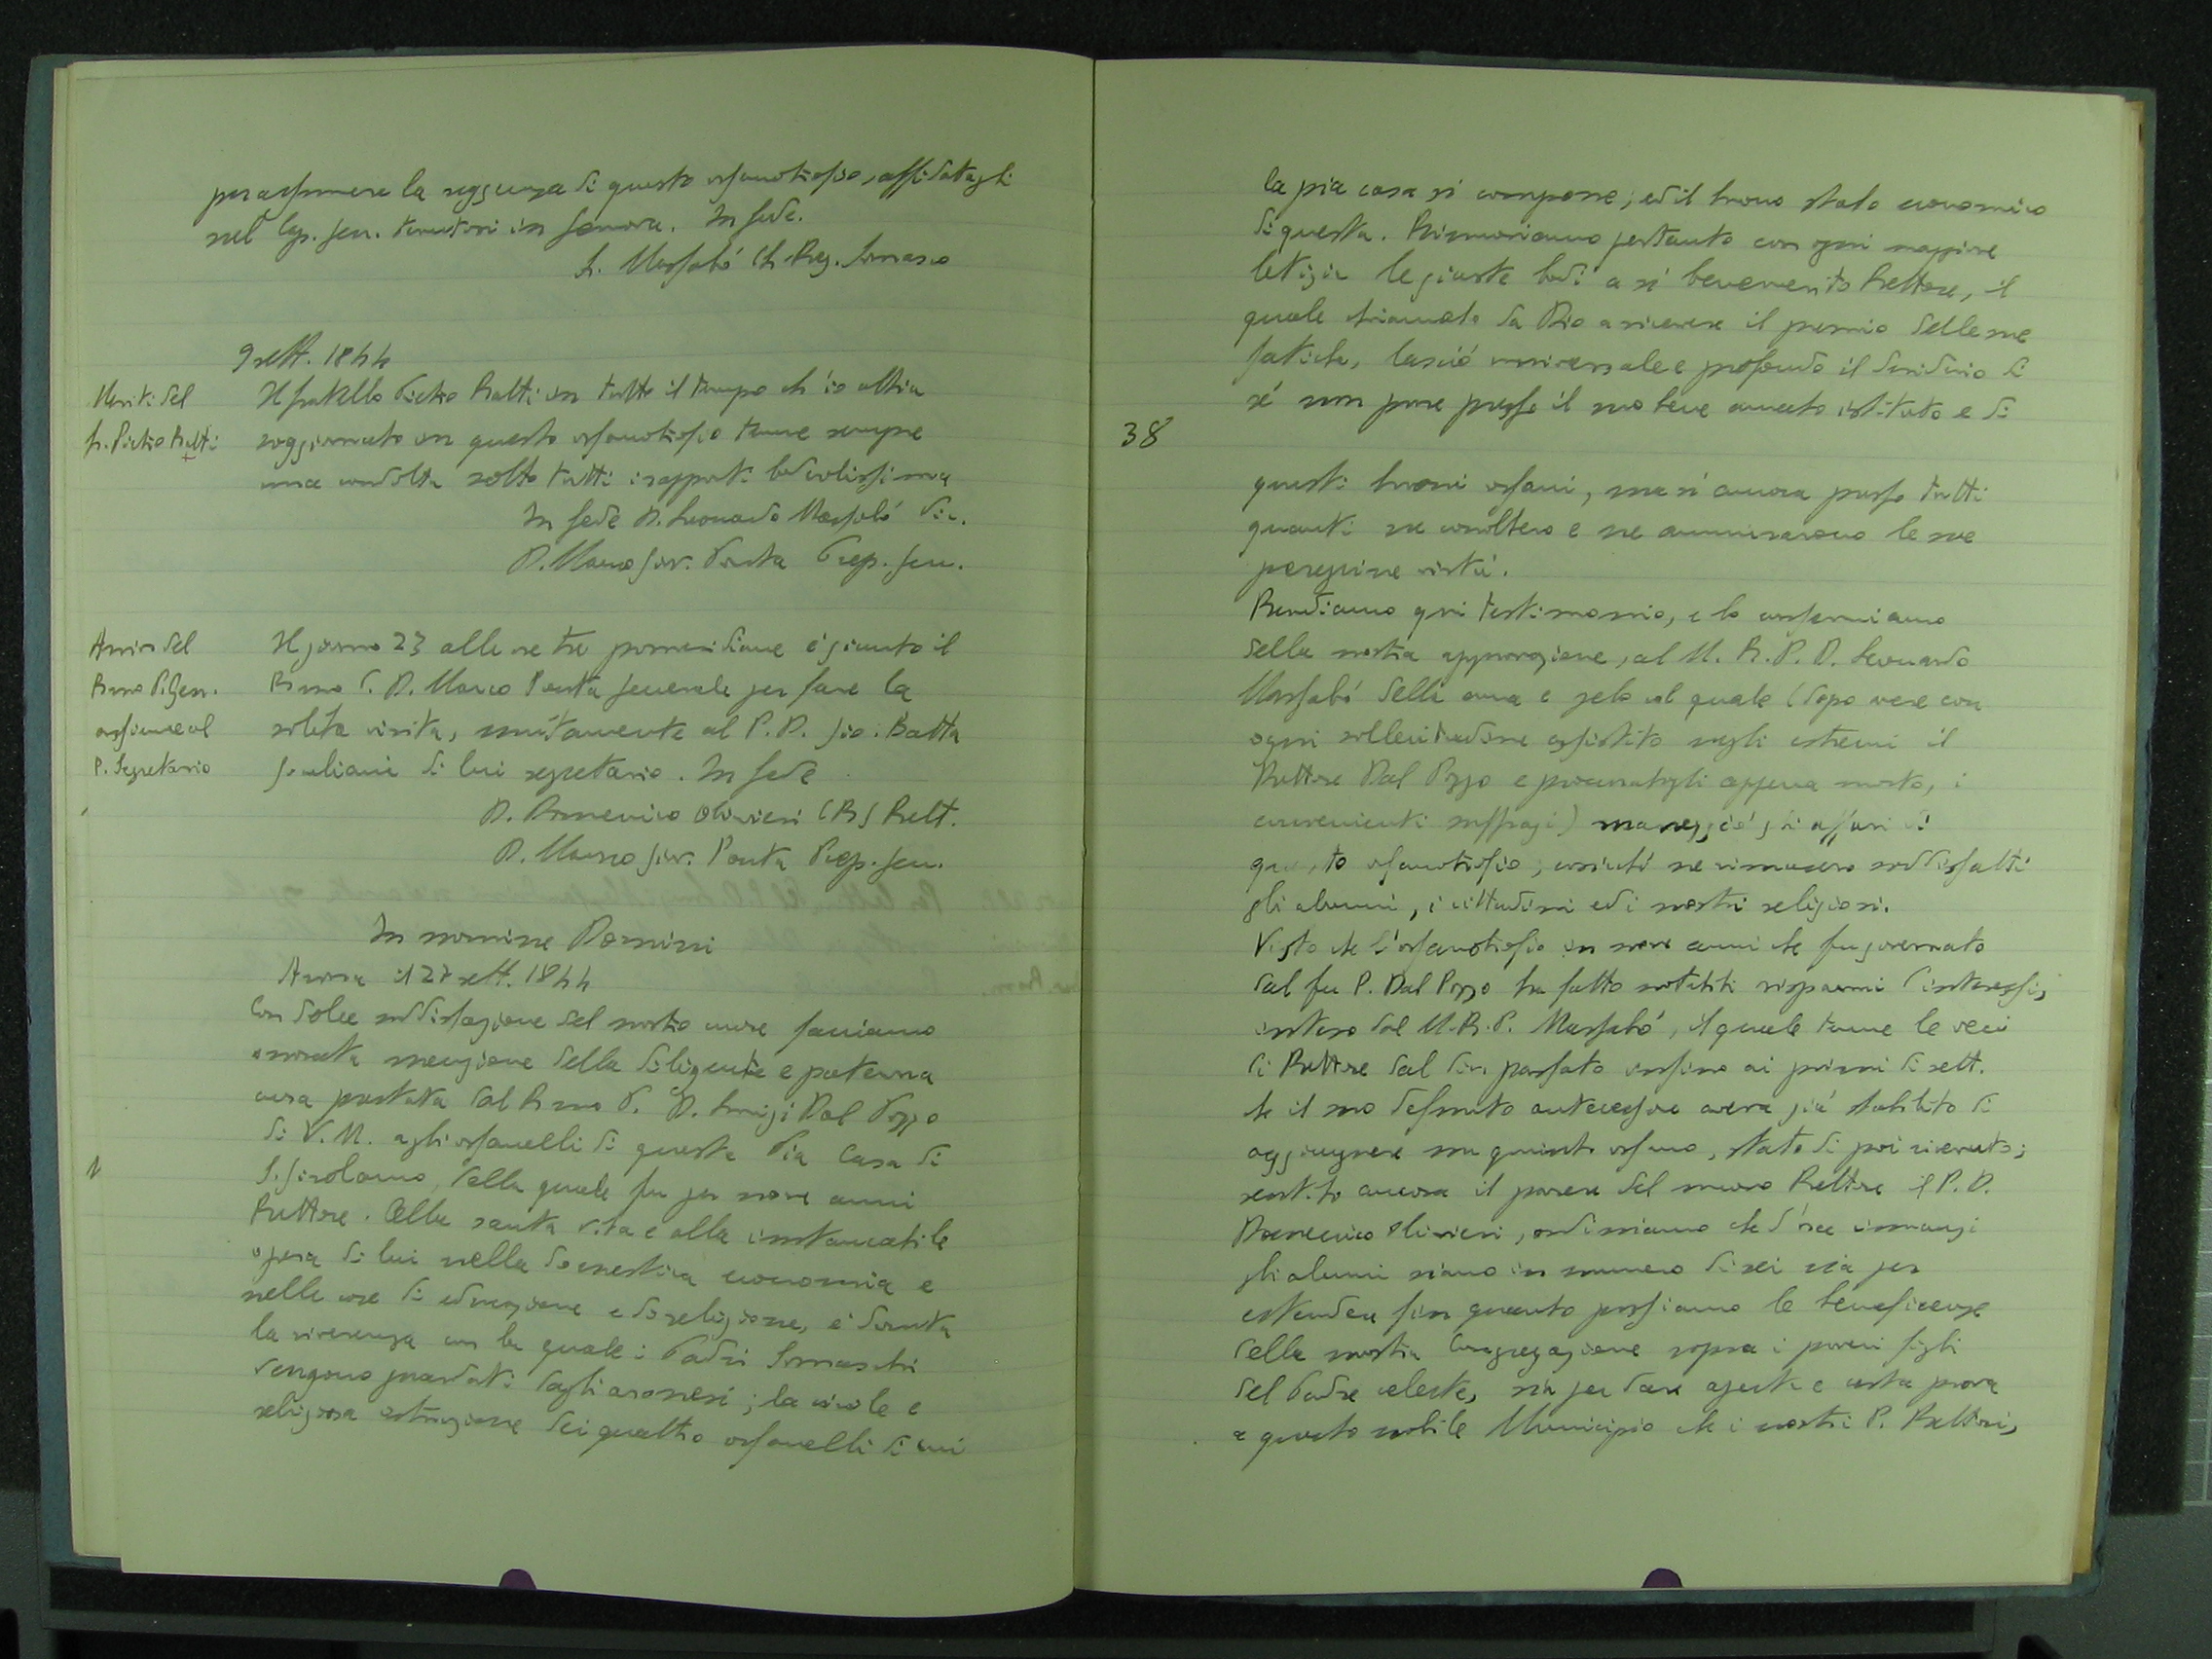 per assumere la reggenza di questo orfanotrofio, affidatagli
nel Cap. Gen. tenutosi in Genova. In fede.
L. Massabò Ch. Reg. Somasco
9 sett. 1844
Meriti del
fr. Pietro Ratti
Il fratello Pietro Ratti in tutto il tempo ch'io abbia
soggiornato in questo orfanotrofio tenne sempre
una condotta sotto tutti i rapporti lodevolissima
In fede D. Leonardo Massabò Dir.
D. Marco Giov. Ponta Prep. Gen.
Arrivo del
Rmo P. Gen.
assieme al
P. Segretario
Il giorno 23 alle ore tre pomeridiane è giunto il
Rmo P. D. Marco Ponta Generale per fare la
solita visita, unitamente al P. D. Gio: Batta
Giuliani di lui segretario. In fede
D. Domenico Olivieri CRS Rett.
D. Marco Giov. Ponta Prep. Gen.
In nomine Domini
Arona il 27 sett. 1844
Con dolce soddisfazione del nostro cuore facciamo
onorata menzione della diligente e paterna
cura prestata dal Rmo P. D. Luigi Dal Pozzo
di V. M. agli orfanelli di questa Pia Casa di
S. Girolamo, della quale fu per nove anni
Rettore. Alla santa vita e alla instancabile
opera di lui nella domestica economia e
nelle cose di educazione e di religione, è dovuta
la riverenza con la quale i Padri Somaschi
vengono guardati dagli aronesi; la civile e
religiosa istruzione dei quattro orfanelli di cui
la pia casa si compone; ed il buono stato economico
di questa. Rinnoviamo pertanto con ogni maggiore
letizia le giuste lodi a sì benemerito Rettore, il
quale chiamato da Dio a ricevere il premio delle sue
fatiche, lasciò universale e profondo il desiderio di
sé non pure presso il suo bene amato istituto e di
38
questi buoni orfani, ma sì ancora presso tutti
quanti ne conobbero e ne ammirarono le sue
peregrine virtù.
Rendiamo qui testimonio, e lo confermiamo
della nostra approvazione, al M. R. P. D. Leonardo
Massabò della cura e zelo col quale (dopo avere con
ogni sollecitudine assistito negli estremi il
Rettore Dal Pozzo e procuratogli appena morto, i
convenienti suffragi) maneggiò gli affari di
questo orfanotrofio; cosicché ne rimasero soddisfatti
gli alunni, i cittadini ed i nostri religiosi.
Visto che l'orfanotrofio in nove anni che fu governato
dal fu P. Dal Pozzo ha fatto notabili risparmi d'interessi,
inteso dal M. R. P. Massabò, il quale tenne le veci
di Rettore dal dic. passato insino ai primi di sett.
che il suo defunto antecessore aveva già stabilito di
aggiungere un quinto orfano, stato di poi ricevuto;
sentito ancora il parere del nuovo Rettore il P. D.
Domenico Olivieri, ordiniamo che d'ora innanzi
gli alunni siano in numero di sei sia per
estendere fin quanto possiamo le beneficenze
della nostra Congregazione sopra i poveri figli
del Padre celeste, sia per dare aperta e certa prova
a questo nobile Municipio che i nostri P. Rettori,